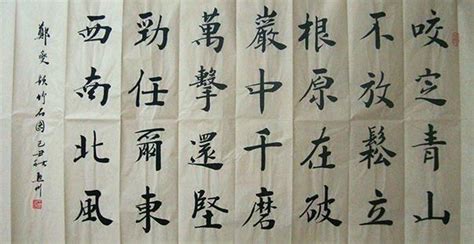 咬定青山
不放鬆立
根原在破
巖中千磨
萬擊還堅
勁任爾東
西南北風
鄭燮 竹石圖己丑